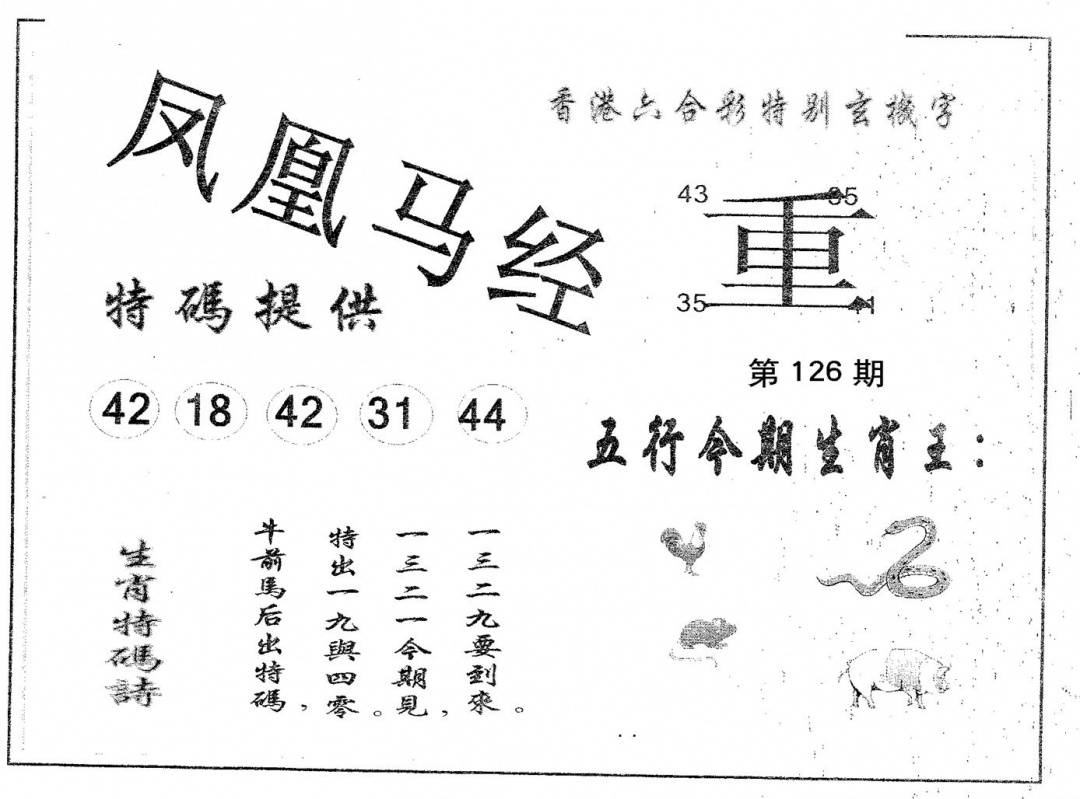 凤凰马经
香港六合彩特别玄機字
43 35
重
35 41
特碼提供
第126期
42 18 42 31 44
五行今期生肖王：
生肖特碼詩
牛前馬后出特碼，
特出一九與四零。
一三二一今期見，
一三二九要到來。